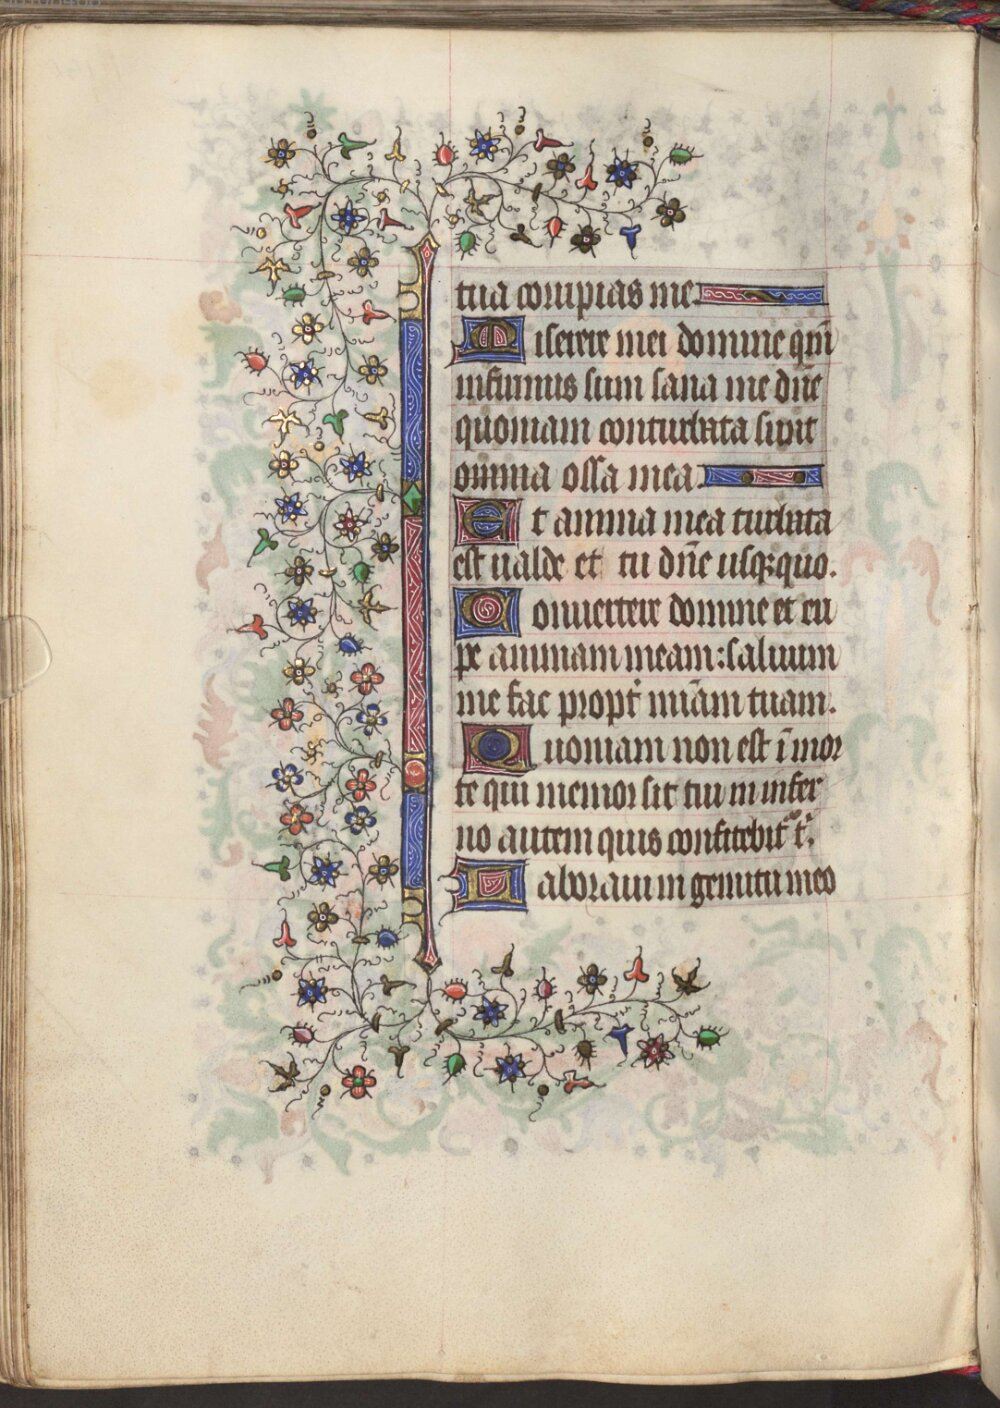 tua corripias me.
Miserere mei domine qm̄
infirmus sum sana me dn̄e
quoniam conturbata sunt
omnia ossa mea
Et anima mea turbata
est ualde et tu dn̄e usqꝫquo.
Conuertere domine et eri
pe animam meam: saluum
me fac propt̄ mīam tuam.
Quoniam non est ī mor
te qui memor sit tui in infer
no autem quis confitebit᷑ t̄.
Laboraui in gemitu meo